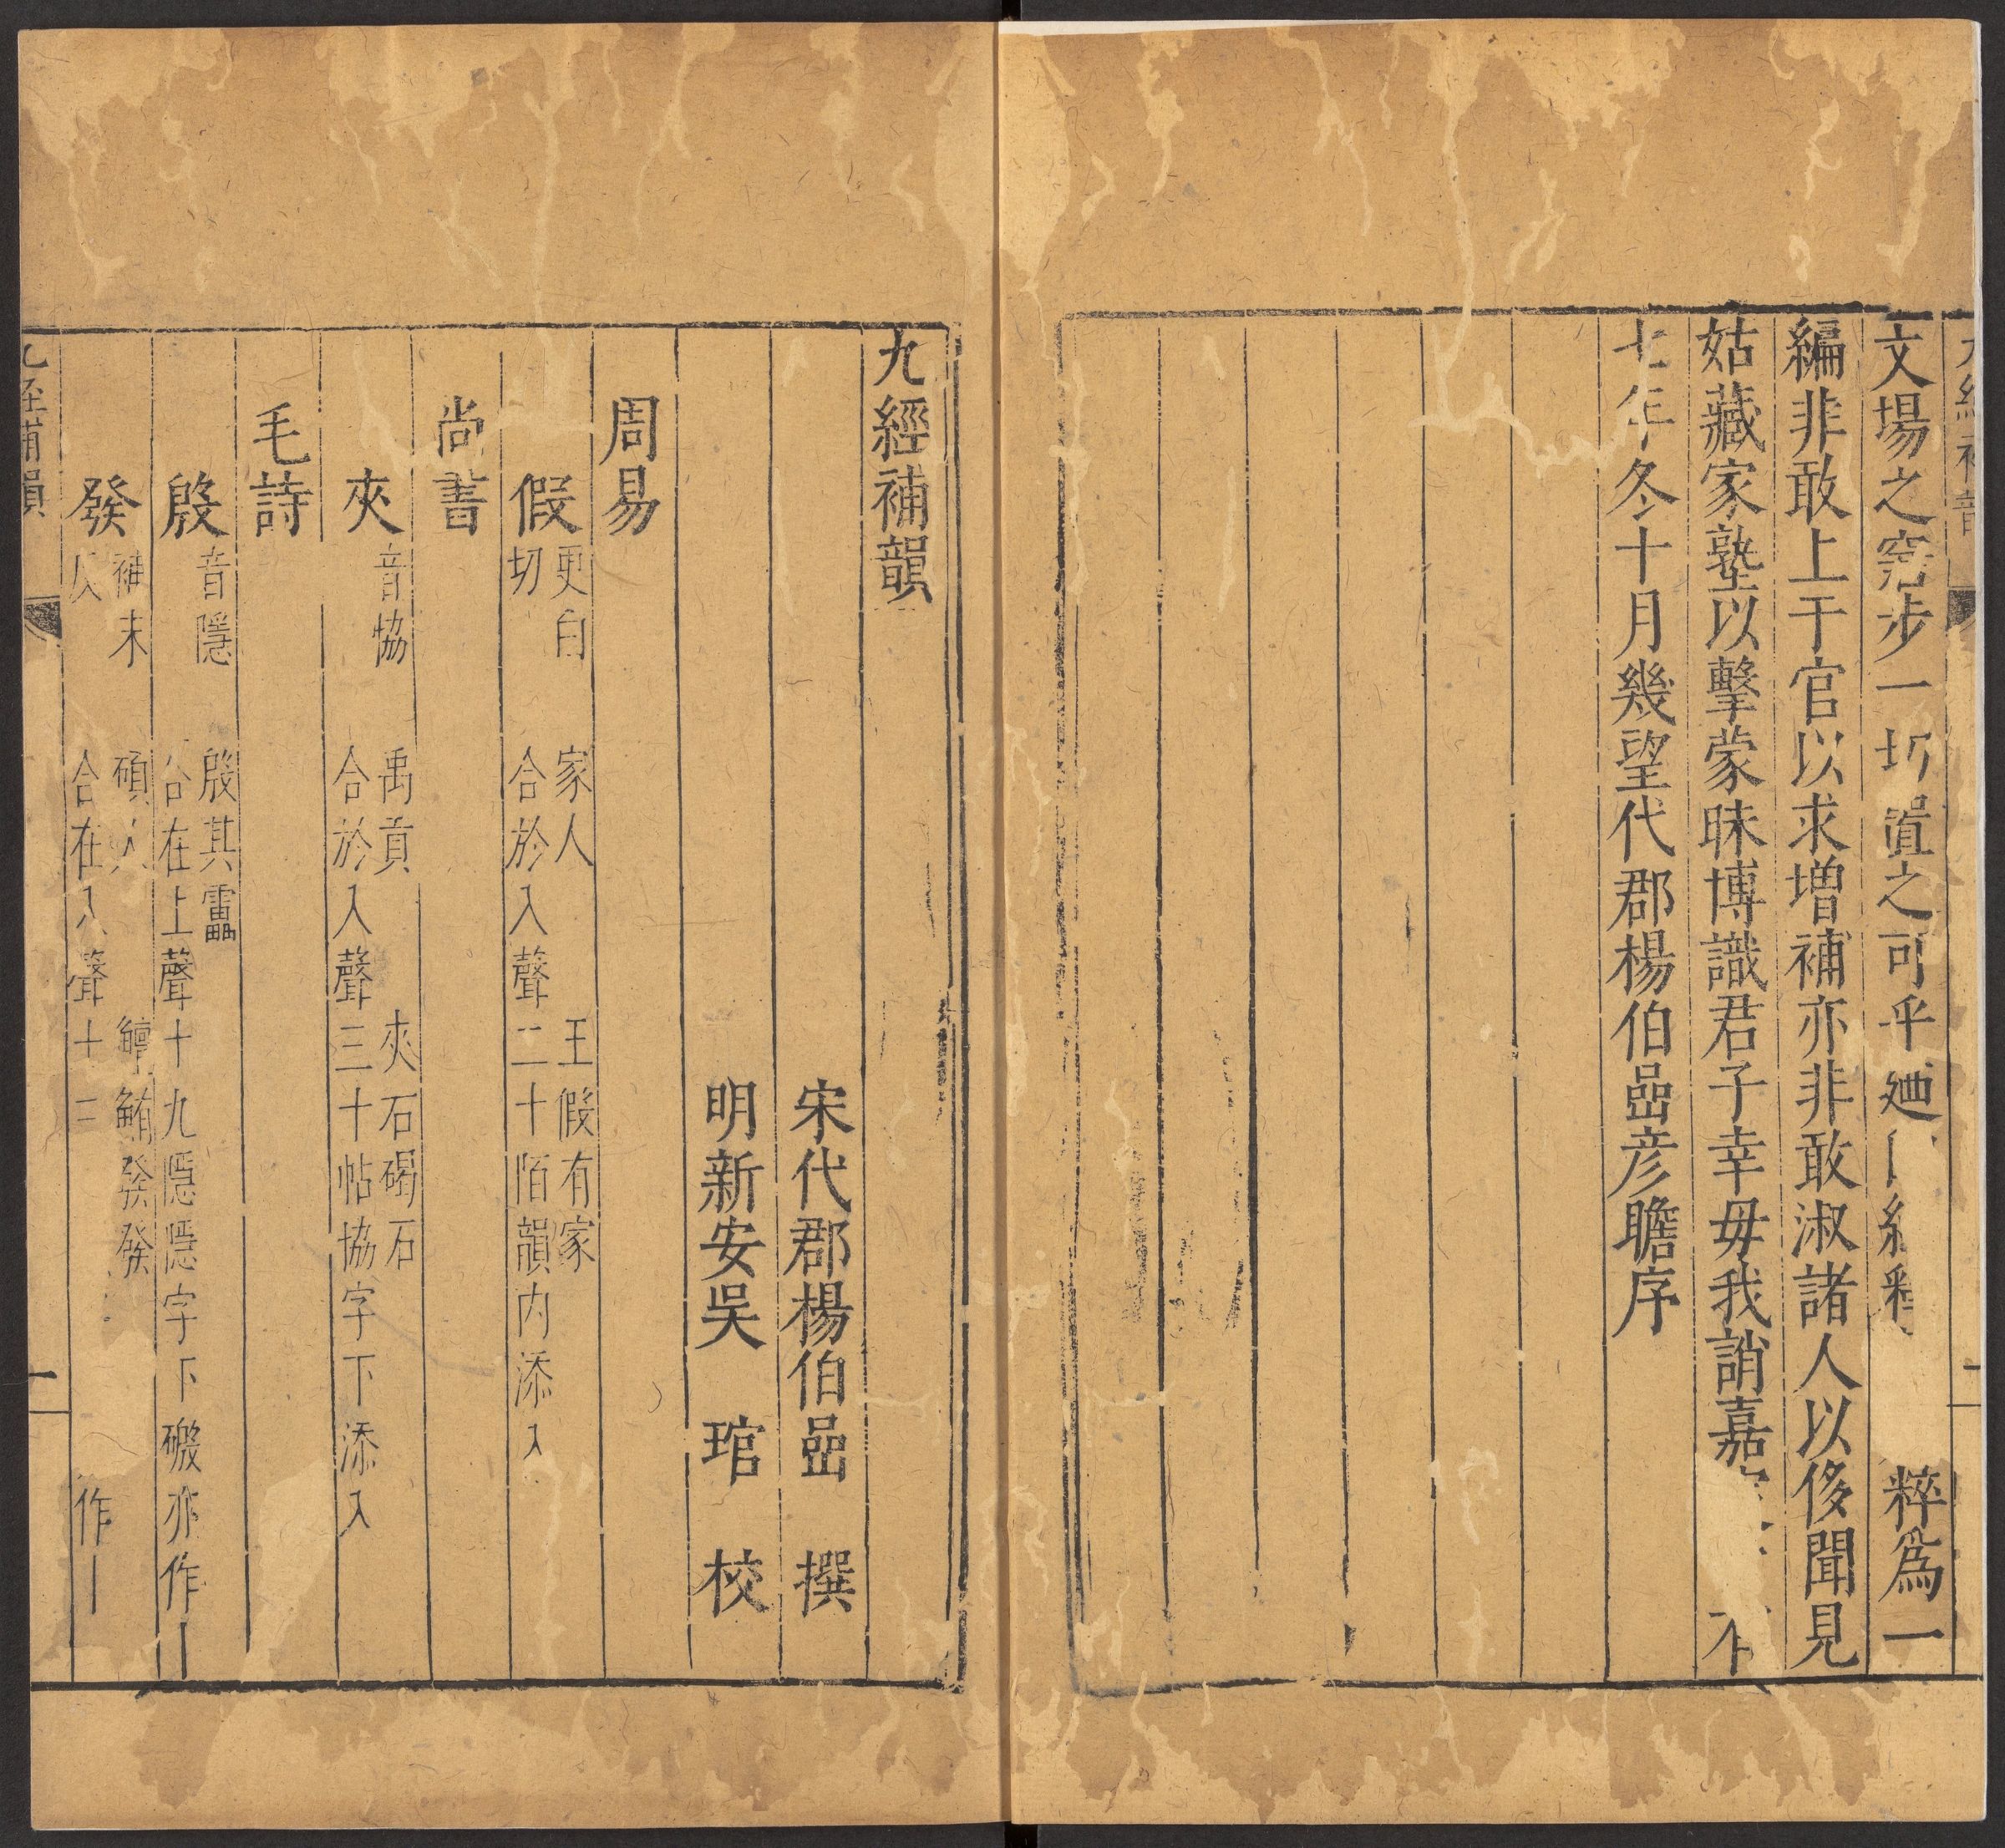 文場之窘步一切置之可乎廼 粹爲一
編非敢上干官以求增補亦非敢淑諸人以侈聞見
姑藏家塾以擊蒙昧博識君子幸毋我誚嘉
七年冬十月幾望代郡楊伯嵒彦瞻序
九經補韻
宋代郡楊伯嵒 撰
明新安吳 琯 校
周易
假 更白切 家人 王假有家 合於入聲二十陌韻内添入
尚書
夾 音協 禹貢 夾石碣石 合於入聲三十帖協字下添入
毛詩
殷 音隱 殷其靁 合在上聲十九隱隱字下磤亦作丨
發 補末反 碩人 鱣鮪發發 合在入聲十 作丨
九經補韻